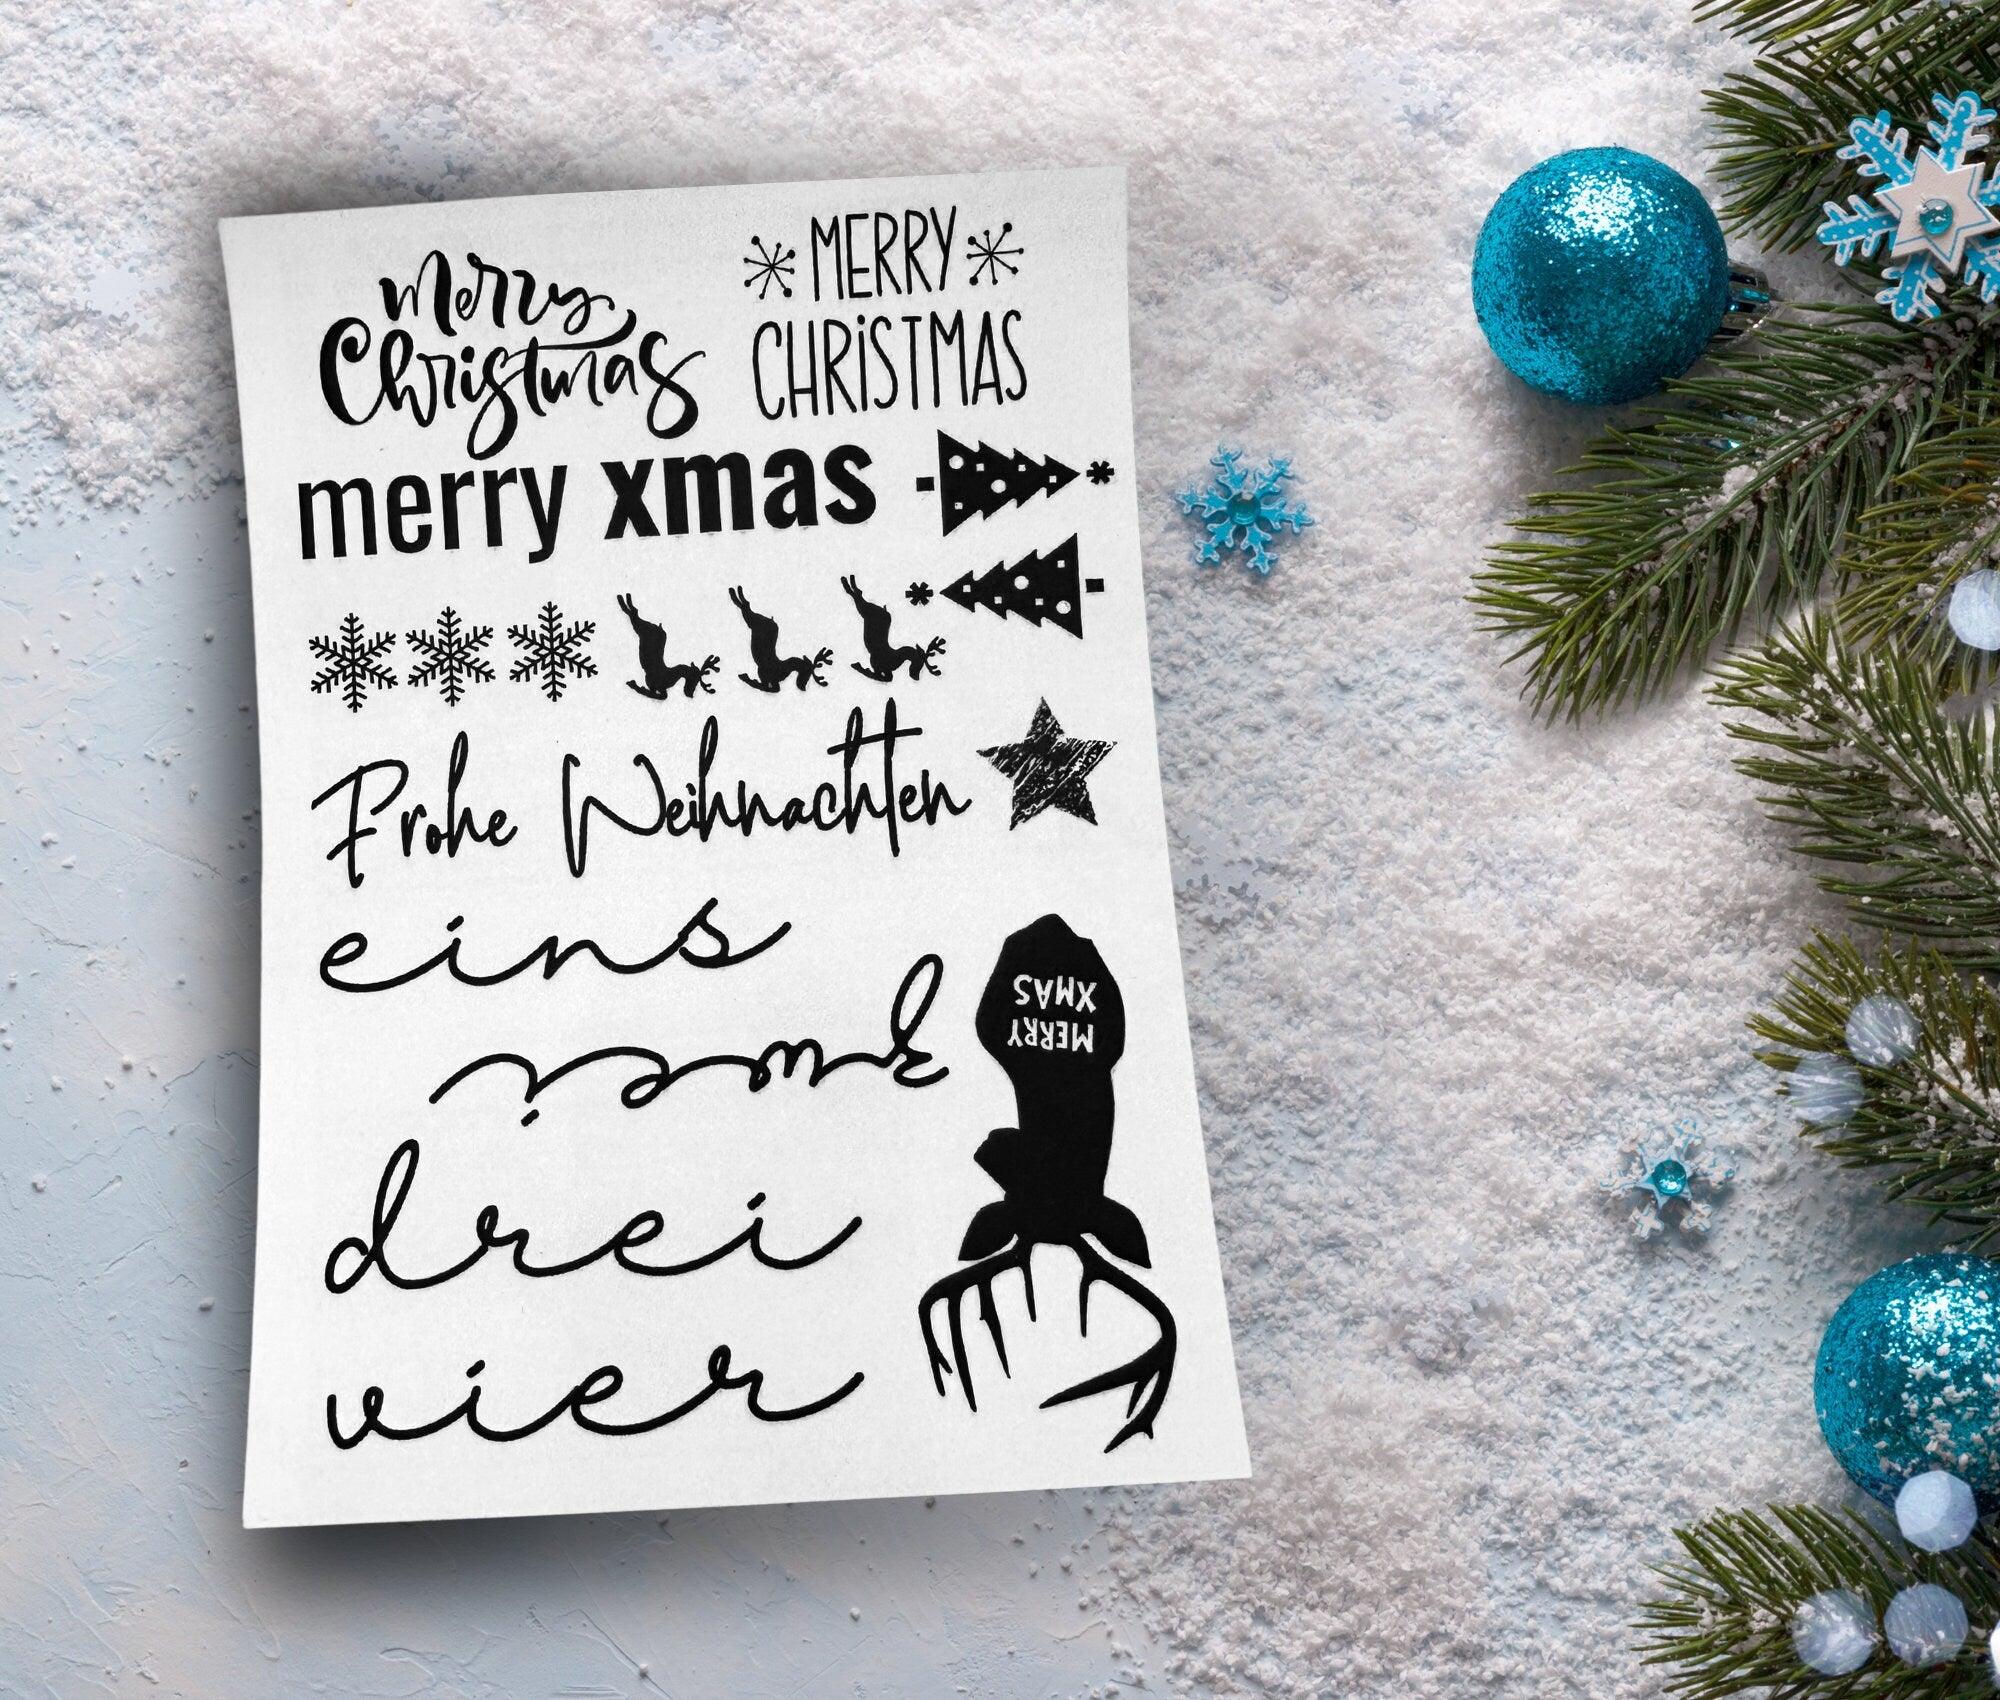 merry
Christmas
MERRY
CHRiSTMAS
merry xmas
Frohe Weihnachten
eins
zwei
drei
vier
MERRY
XMAS